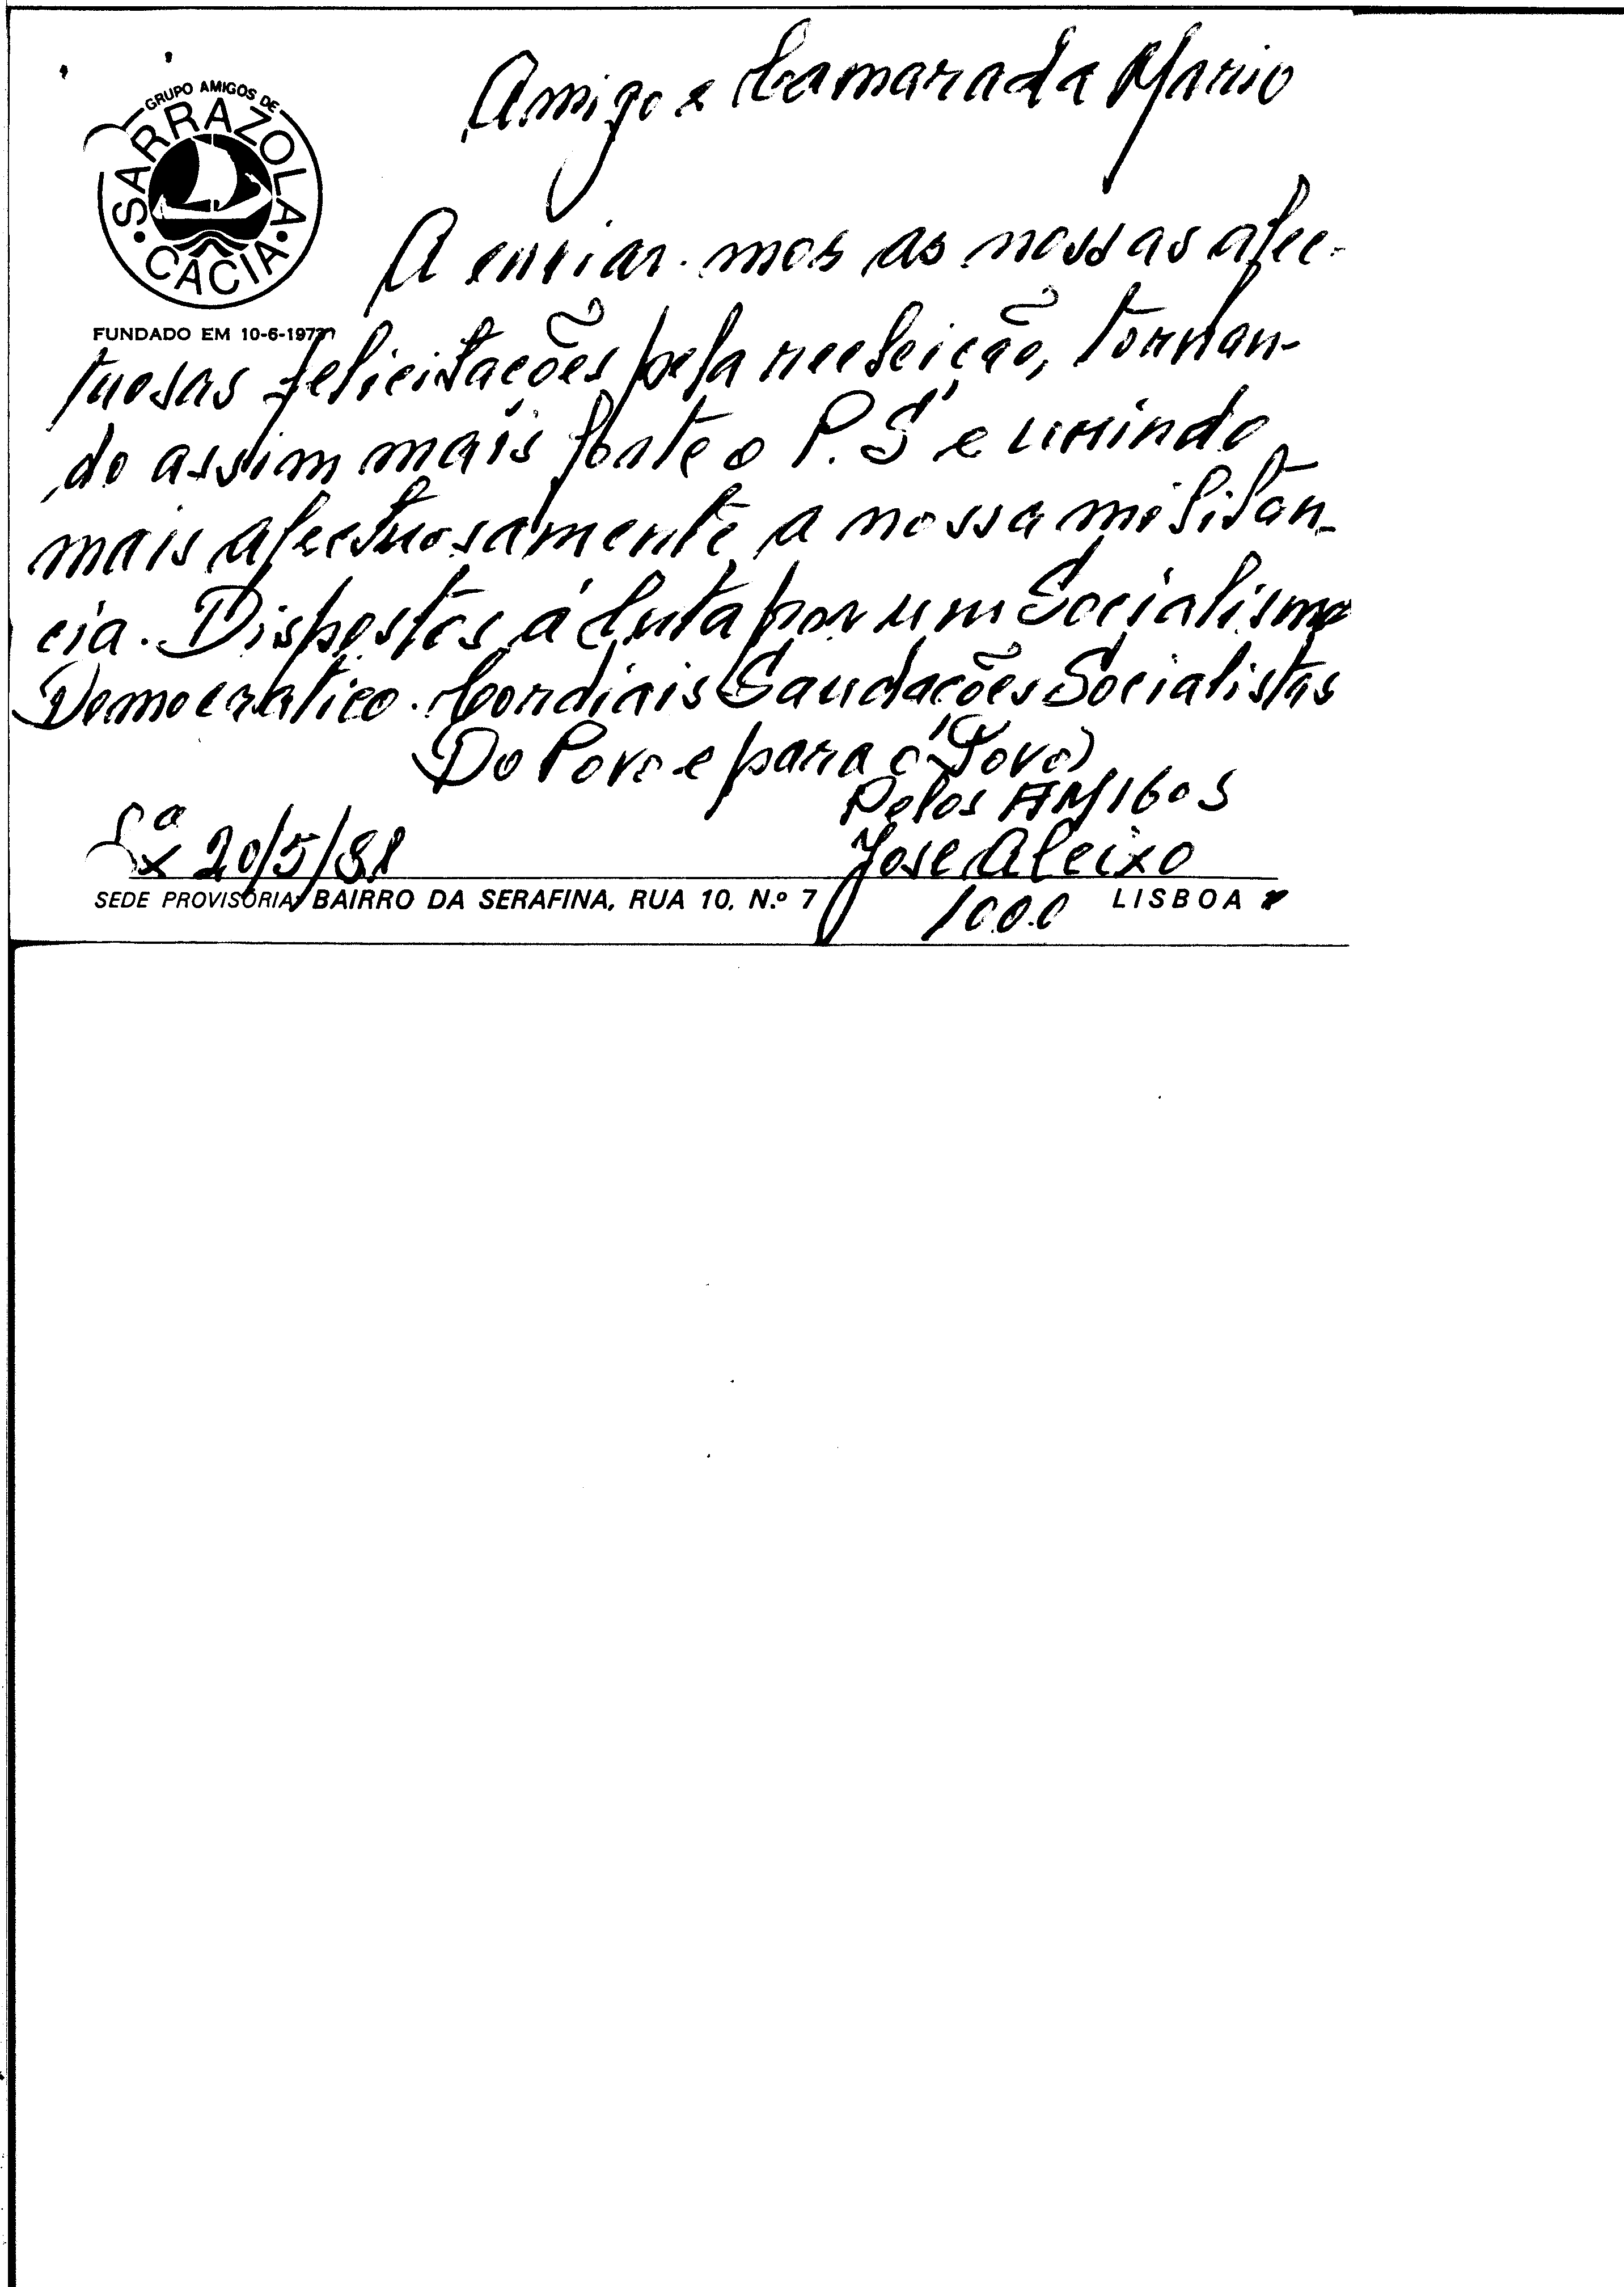 Amigo e Camarada Mario
GRUPO AMIGOS DE
SARRAZOLA
CACIA
A enviar-mos as nossas afec-
FUNDADO EM 10-6-197
tuosas felicitações pela reeleição, tornan-
do assim mais forte o P.S e unindo
mais afectuosamente a nossa militan-
cia. Dispostos á luta por um Socialismo
Democratico. Cordiais Saudações Socialistas
Do Povo e para o Povo)
Pelos AMIGOS
Lxª 20/5/81
Jose Aleixo
SEDE PROVISÓRIA: BAIRRO DA SERAFINA, RUA 10, N.º 7 1000 LISBOA